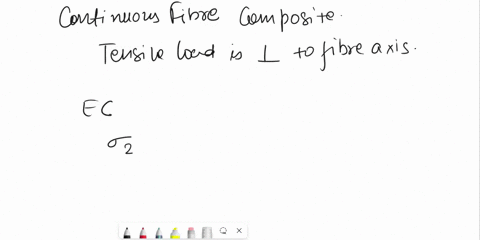 Continuous Fibre Composite.
Tensile load is ⊥ to fibre axis.
EC
σ2